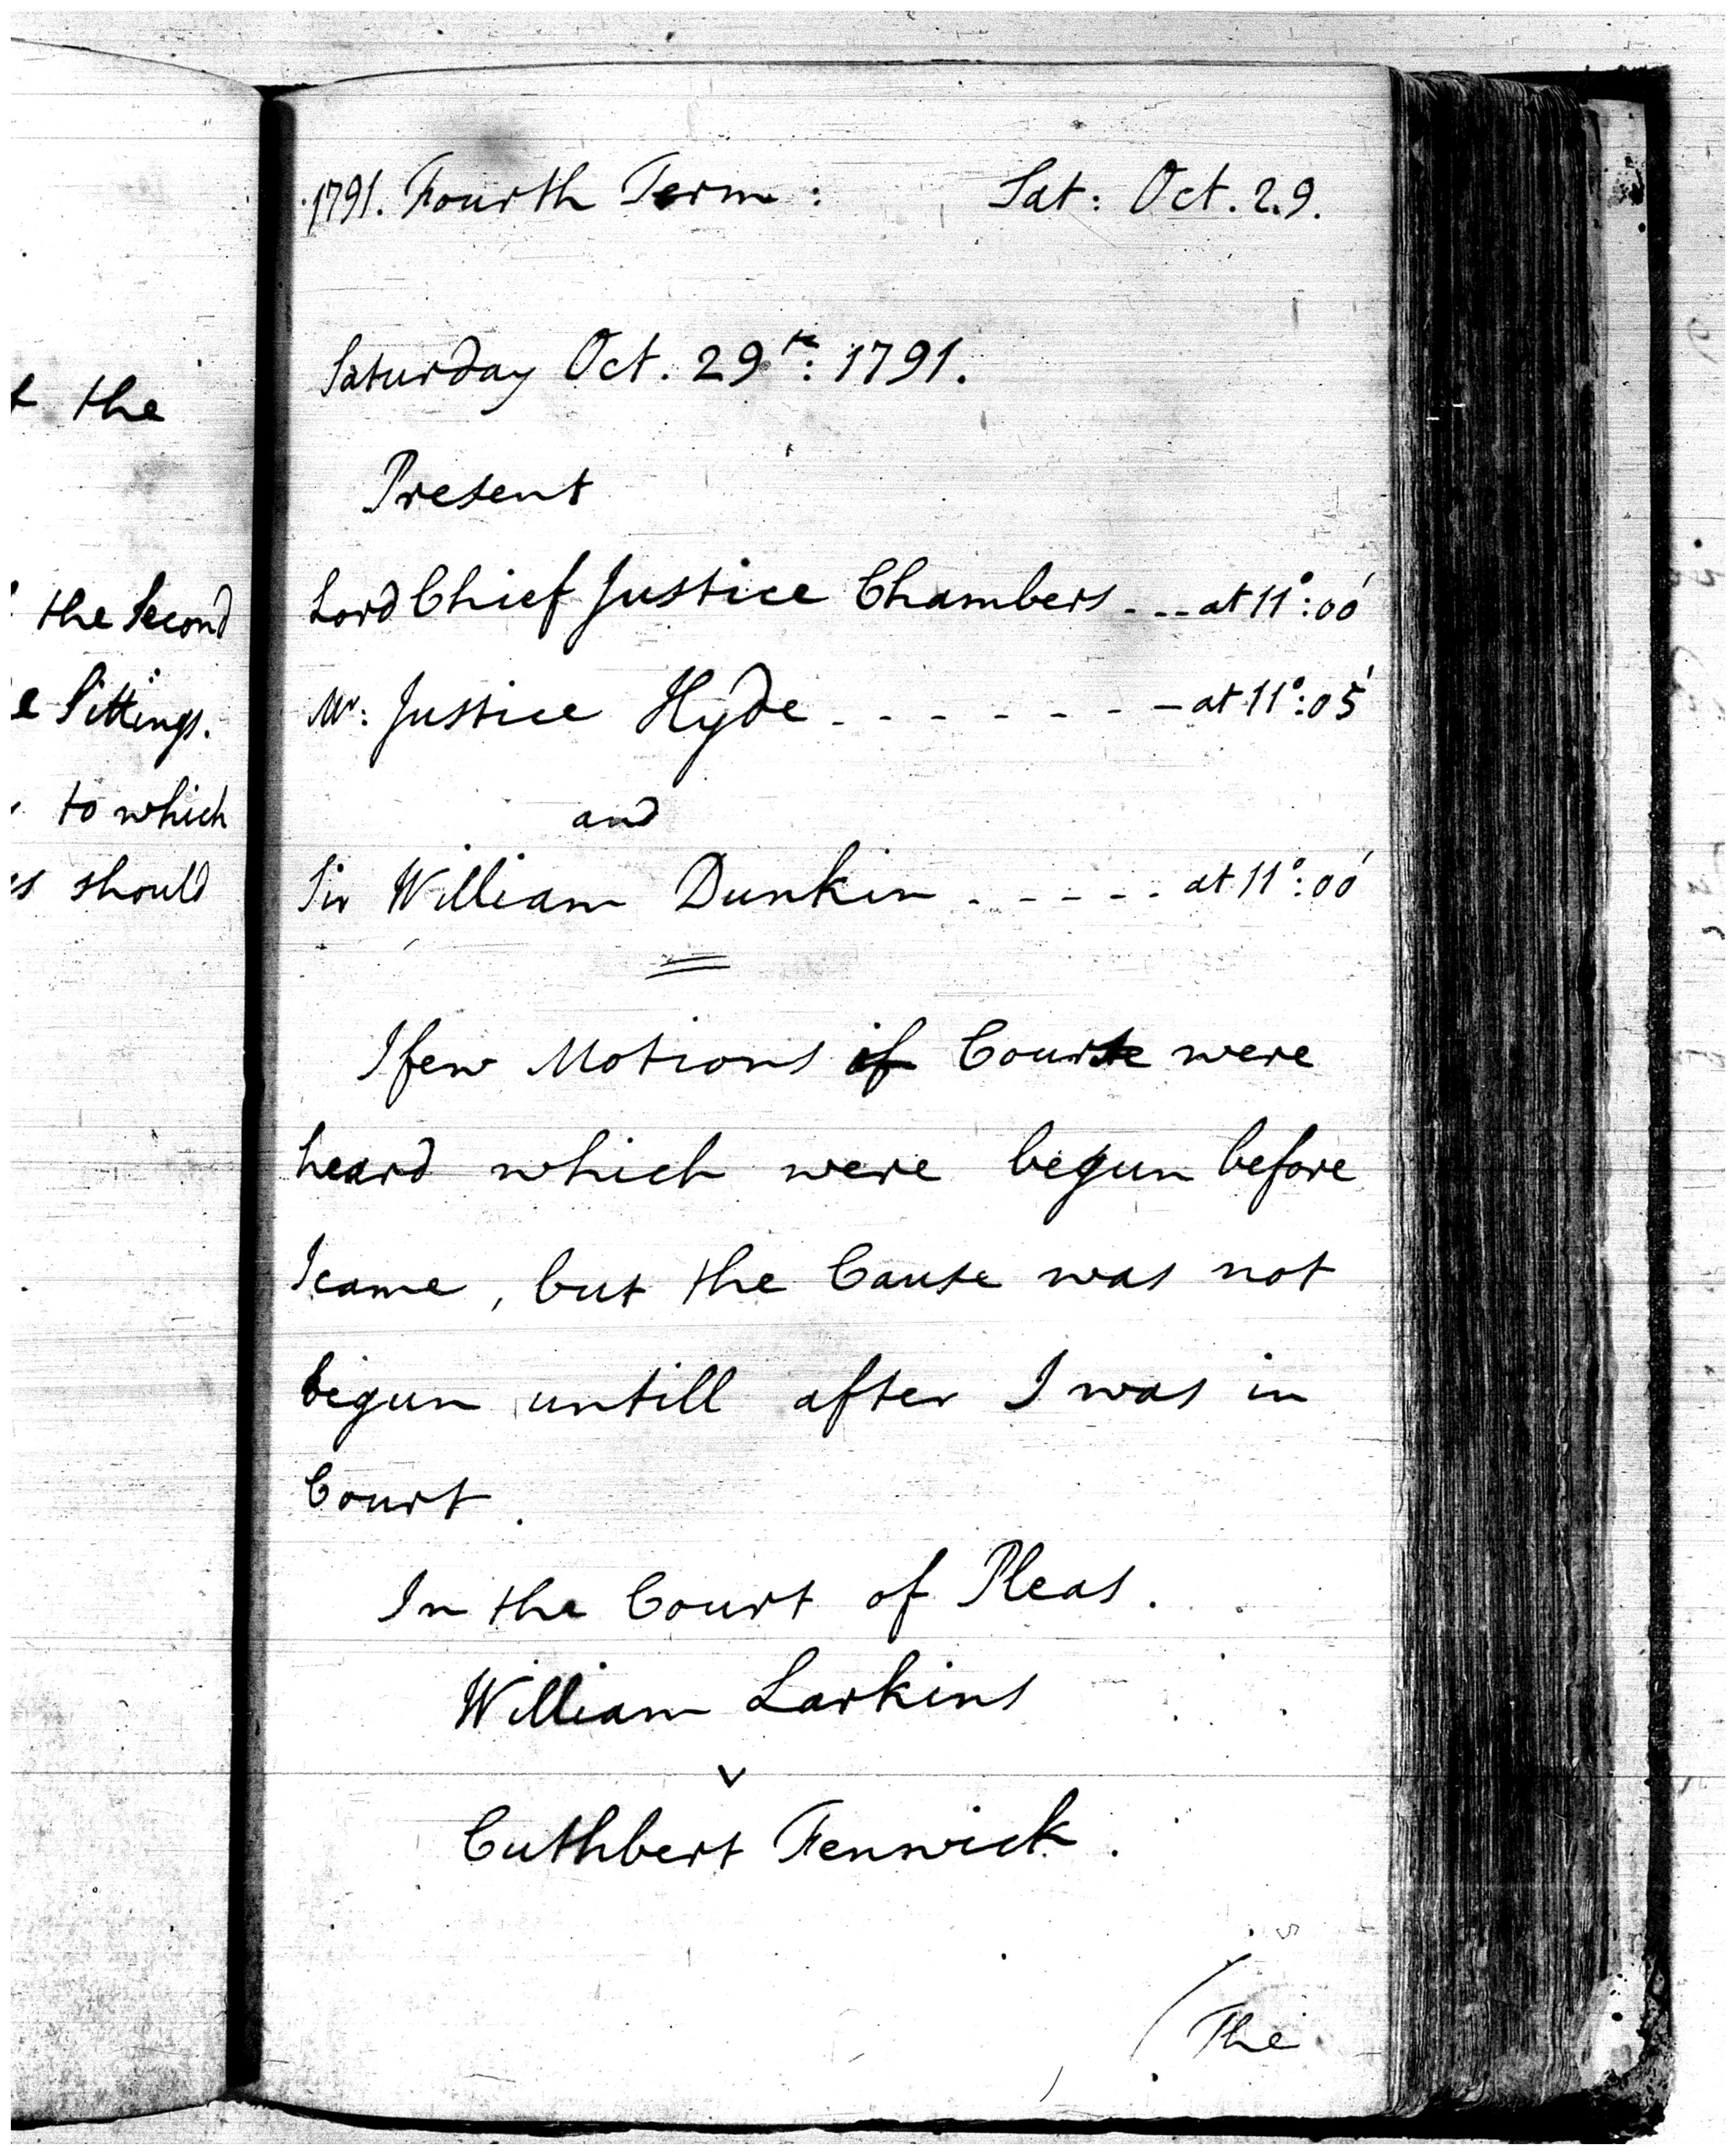 t the
the Second
e Sittings.
to which
s should
1791. Fourth Term: Sat: Oct. 29.
Saturday Oct. 29th: 1791.
Present
Lord Chief Justice Chambers - - - at 11°:00'
Mr: Justice Hyde - - - - - - - at 11°:05'
and
Sir William Dunkin - - - - - at 11°:00'
few Motions of Course were
heard which were begun before
I came, but the Cause was not
begun untill after I was in
Court.
In the Court of Pleas.
William Larkins
v
Cuthbert Fenwick.
(The